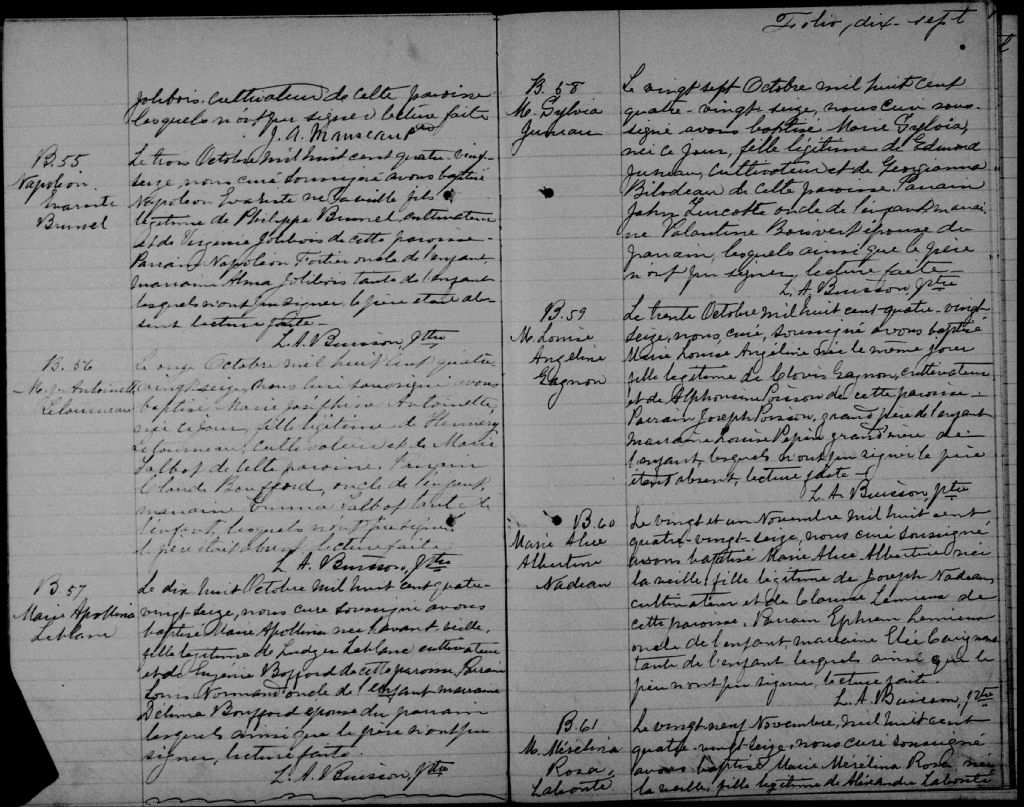 Jolibois, cultivateur de cette paroisse
lesquels n'ont pu signer lecture faite
J. A. Manseau Ptre
B. 55
Napoléon
Evariste
Brunel
Le trois Octobre mil huit cent quatre-vingt-
seize, nous curé soussigné avons baptisé
Napoléon Evariste né la veille fils
légitime de Philippe Brunel, cultivateur
et de Virginie Jolibois de cette paroisse -
Parrain Napoléon Fortier oncle de l'enfant,
marraine Alma Jolibois tante de l'enfant
lesquels n'ont pu signer, le père étant ab-
sent lecture faite -
L. A. Buisson, Ptre
B. 56
M. J. Antoinette
Létourneau
Le onze Octobre mil huit cent quatre
vingt-seize, nous curé soussigné avons
baptisé Marie Joséphine Antoinette,
née ce jour, fille légitime de Hennery
Létourneau, cultivateur et de Marie
Talbot de cette paroisse. Parrain
Claude Boufford, oncle de l'enfant,
marraine Emma Talbot tante de
l'enfant, lesquels n'ont pu signer
le père était absent, lecture faite
L. A. Buisson, Ptre
B 57
Marie Apollina
Leblanc
Le dix huit Octobre mil huit cent quatre-
vingt-seize, nous curé soussigné avons
baptisé Marie Apollina née l'avant veille,
fille légitime de Ludger Leblanc cultivateur
et de Eugénie Bofford de cette paroisse, Parrain
Louis Normand oncle de l'enfant marraine
Délima Boufford épouse du parrain
lesquels ainsi que le père n'ont pu
signer, lecture faite.
L. A. Buisson, Ptre
Folio, dix-sept
B. 58
M. Sylvia
Juneau
Le vingt sept Octobre mil huit cent
quatre-vingt-seize, nous curé sous-
signé avons baptisé Marie Sylvia,
née ce jour, fille légitime de Edmond
Juneau, cultivateur et de Georgianna
Bilodeau de cette paroisse. Parrain
John Turcotte oncle de l'enfant, marrai-
ne Valentine Boisvert épouse du
parrain, lesquels ainsi que le père
n'ont pu signer, lecture faite -
L. A. Buisson, Ptre
B. 59
M. Louise
Angéline
Gagnon
Le trente Octobre mil huit cent quatre-vingt-
seize, nous, curé, soussigné avons baptisé
Marie Louise Angéline née le même jour
fille légitime de Clovis Gagnon, cultivateur
et de Alphonsine Poisson de cette paroisse -
Parrain Joseph Poisson, grand père de l'enfant
marraine Louise Pepin grand'mère de
l'enfant, lesquels n'ont pu signer le père
étant absent, lecture faite -
L. A. Buisson, Ptre
B. 60
Marie Alice
Albertine
Nadeau
Le vingt et un Novembre mil huit cent
quatre-vingt-seize, nous curé soussigné
avons baptisé Marie Alice Albertine née
la veille, fille légitime de Joseph Nadeau,
cultivateur et de Lemieux de
cette paroisse. Parrain Ephrem Lemieux
oncle de l'enfant, marraine
tante de l'enfant lesquels ainsi que le
père n'ont pu signer, lecture faite.
L. A. Buisson, Ptre
B. 61
M. Mérélina
Rosa,
Labonté
Le vingt-neuf Novembre, mil huit cent
quatre-vingt-seize, nous curé soussigné
avons baptisé Marie Mérélina Rosa, née
la veille, fille légitime de Alexandre Labonté